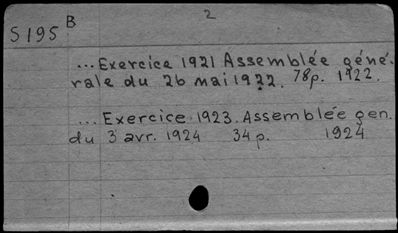 2
S 195 B
... Exercice 1921 Assemblée géné-
rale du 26 mai 1922. 78p. 1922.
... Exercice 1923. Assemblée gen.
du 3 avr. 1924 34p. 1924